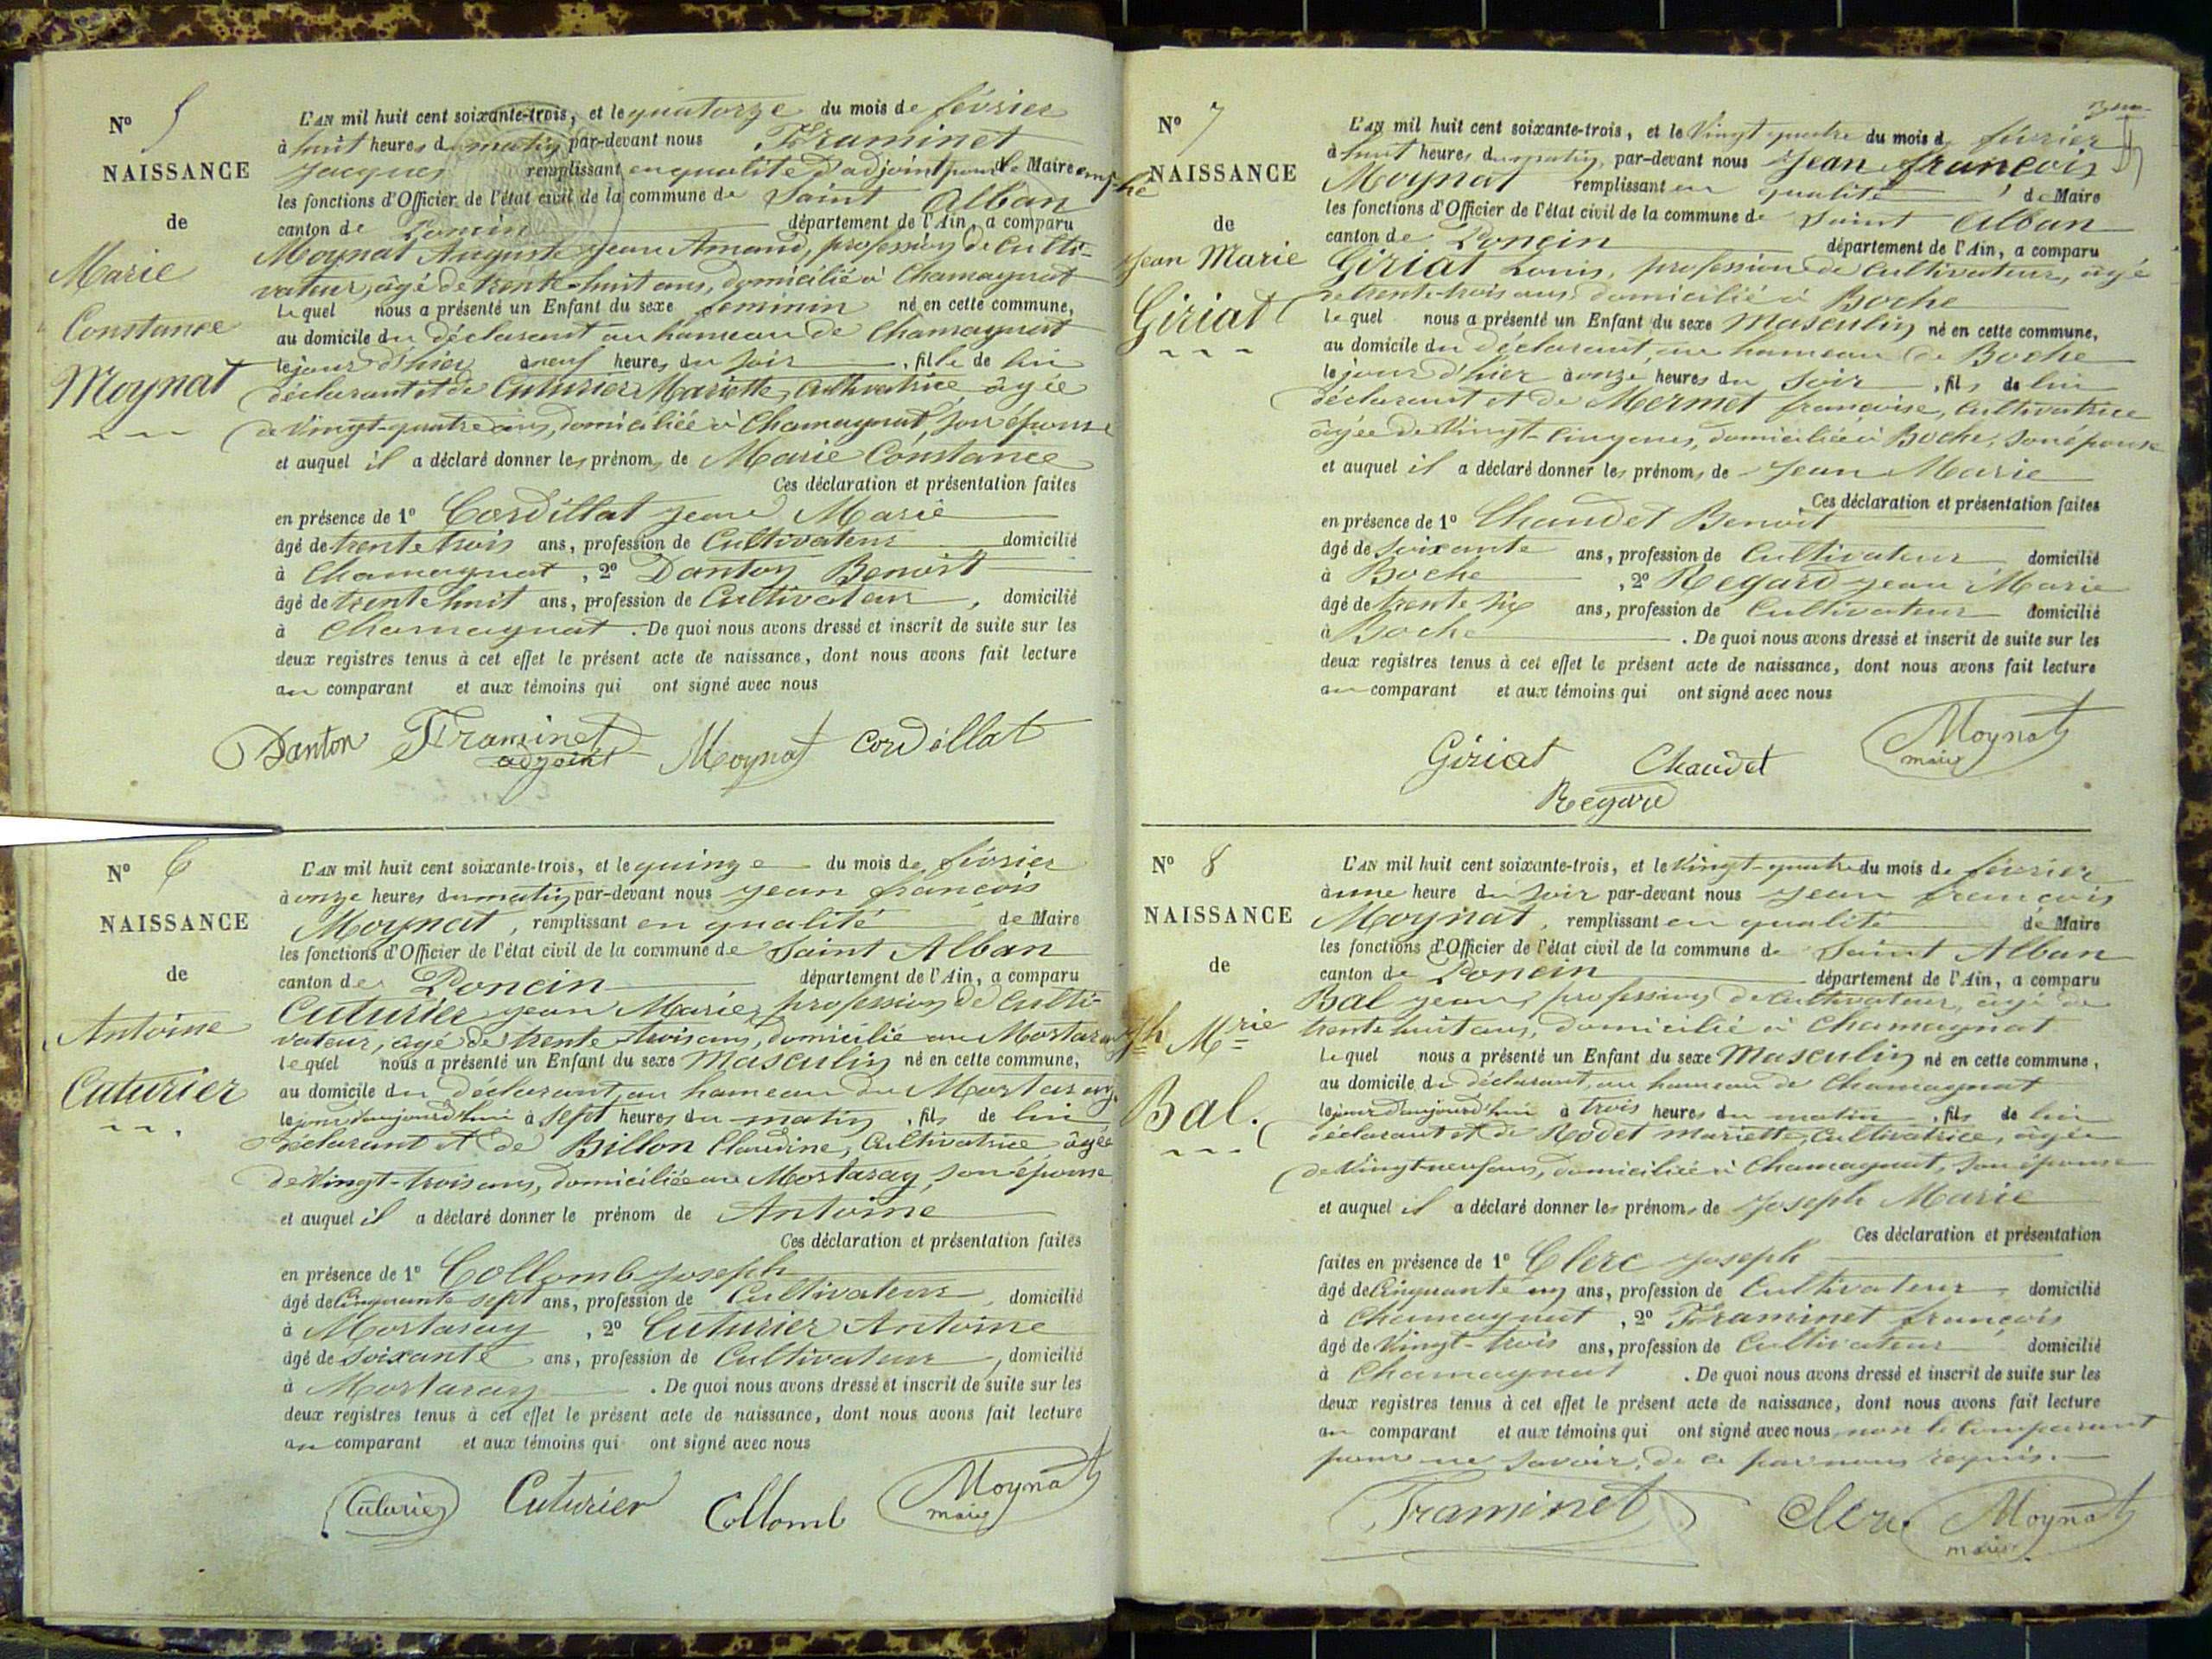 N° 5
NAISSANCE
de
Marie
Constance
Moynat
L'AN mil huit cent soixante-trois, et le quatorze du mois de février
à huit heures du matin par-devant nous Framinet
Jacques remplissant en qualité d'adjoint pour le Maire empêché
les fonctions d'Officier de l'état civil de la commune de Saint Alban
canton de Poncin département de l'Ain, a comparu
Moynat Auguste Jean Amand, profession de Culti-
vateur, âgé de trente-huit ans, domicilié à Chamagnat
lequel nous a présenté un Enfant du sexe féminin né en cette commune,
au domicile du déclarant au hameau de Chamagnat
le jour d'hier à neuf heures du soir, fille de lui
déclarant et de Cuturier Mariette, Cultivatrice âgée
de Vingt-quatre ans, domiciliée à Chamagnat, son épouse
et auquel il a déclaré donner les prénoms de Marie Constance
Ces déclaration et présentation faites
en présence de 1° Cordillat Jean Marie
âgé de trente trois ans, profession de Cultivateur domicilié
à Chamagnat, 2° Danton Benoit
âgé de trente huit ans, profession de Cultivateur, domicilié
à Chamagnat. De quoi nous avons dressé et inscrit de suite sur les
deux registres tenus à cet effet le présent acte de naissance, dont nous avons fait lecture
au comparant et aux témoins qui ont signé avec nous
Danton Framinet adjoint Moynat Cordillat
N° 6
NAISSANCE
de
Antoine
Cuturier
L'AN mil huit cent soixante-trois, et le quinze du mois de février
à onze heures du matin par-devant nous Jean françois
Moynat, remplissant en qualité de Maire
les fonctions d'Officier de l'état civil de la commune de Saint Alban
canton de Poncin département de l'Ain, a comparu
Cuturier Jean Marie, profession de Culti-
vateur, âgé de trente trois ans, domicilié au Mortaray
lequel nous a présenté un Enfant du sexe Masculin né en cette commune,
au domicile du déclarant, au hameau du Mortaray
le jour d'aujourd'hui à sept heures du matin, fils de lui
déclarant et de Billon Claudine, Cultivatrice âgée
de Vingt-trois ans, domiciliée au Mortaray, son épouse
et auquel il a déclaré donner le prénom de Antoine
Ces déclaration et présentation faites
en présence de 1° Collomb Joseph
âgé de Cinquante sept ans, profession de Cultivateur, domicilié
à Mortaray, 2° Cuturier Antoine
âgé de soixante ans, profession de Cultivateur, domicilié
à Mortaray. De quoi nous avons dressé et inscrit de suite sur les
deux registres tenus à cet effet le présent acte de naissance, dont nous avons fait lecture
au comparant et aux témoins qui ont signé avec nous
Cuturier Cuturier Collomb Moynat maire
N° 7
NAISSANCE
de
Jean Marie
Giriat
L'AN mil huit cent soixante-trois, et le Vingt quatre du mois de février
à huit heures du matin, par-devant nous Jean françois
Moynat remplissant en qualité de Maire
les fonctions d'Officier de l'état civil de la commune de Saint Alban
canton de Poncin département de l'Ain, a comparu
Giriat Louis, profession de Cultivateur, âgé
de trente-trois ans domicilié à Boche
lequel nous a présenté un Enfant du sexe Masculin né en cette commune,
au domicile du déclarant, au hameau de Boche
le jour d'hier à onze heures du soir, fils de lui
déclarant et de Mermet françoise, Cultivatrice
âgée de Vingt-cinq ans, domiciliée à Boche, son épouse
et auquel il a déclaré donner les prénoms de Jean Marie
Ces déclaration et présentation faites
en présence de 1° Chaudet Benoit
âgé de soixante ans, profession de Cultivateur domicilié
à Boche, 2° Regard Jean Marie
âgé de trente six ans, profession de Cultivateur domicilié
à Boche. De quoi nous avons dressé et inscrit de suite sur les
deux registres tenus à cet effet le présent acte de naissance, dont nous avons fait lecture
au comparant et aux témoins qui ont signé avec nous
Giriat Chaudet Moynat maire
Regard
N° 8
NAISSANCE
de
Jph Mrie
Bal.
L'AN mil huit cent soixante-trois, et le Vingt-quatre du mois de février
à une heure du soir par-devant nous Jean françois
Moynat, remplissant en qualité de Maire
les fonctions d'Officier de l'état civil de la commune de Saint Alban
canton de Poncin département de l'Ain, a comparu
Bal Jean, profession de Cultivateur, âgé de
trente huit ans, domicilié à Chamagnat
lequel nous a présenté un Enfant du sexe Masculin né en cette commune,
au domicile du déclarant, au hameau de Chamagnat
le jour d'aujourd'hui à trois heures du matin, fils de lui
déclarant et de Rodet Mariette, Cultivatrice, âgée
de Vingt-neuf ans, domiciliée à Chamagnat, son épouse
et auquel il a déclaré donner les prénoms de Joseph Marie
Ces déclaration et présentation
faites en présence de 1° Clerc Joseph
âgé de Cinquante un ans, profession de Cultivateur, domicilié
à Chamagnat, 2° Framinet françois
âgé de Vingt-trois ans, profession de Cultivateur domicilié
à Chamagnat. De quoi nous avons dressé et inscrit de suite sur les
deux registres tenus à cet effet le présent acte de naissance, dont nous avons fait lecture
au comparant et aux témoins qui ont signé avec nous, non le Comparant
pour ne savoir, de ce par nous requis.
Framinet Clerc Moynat maire